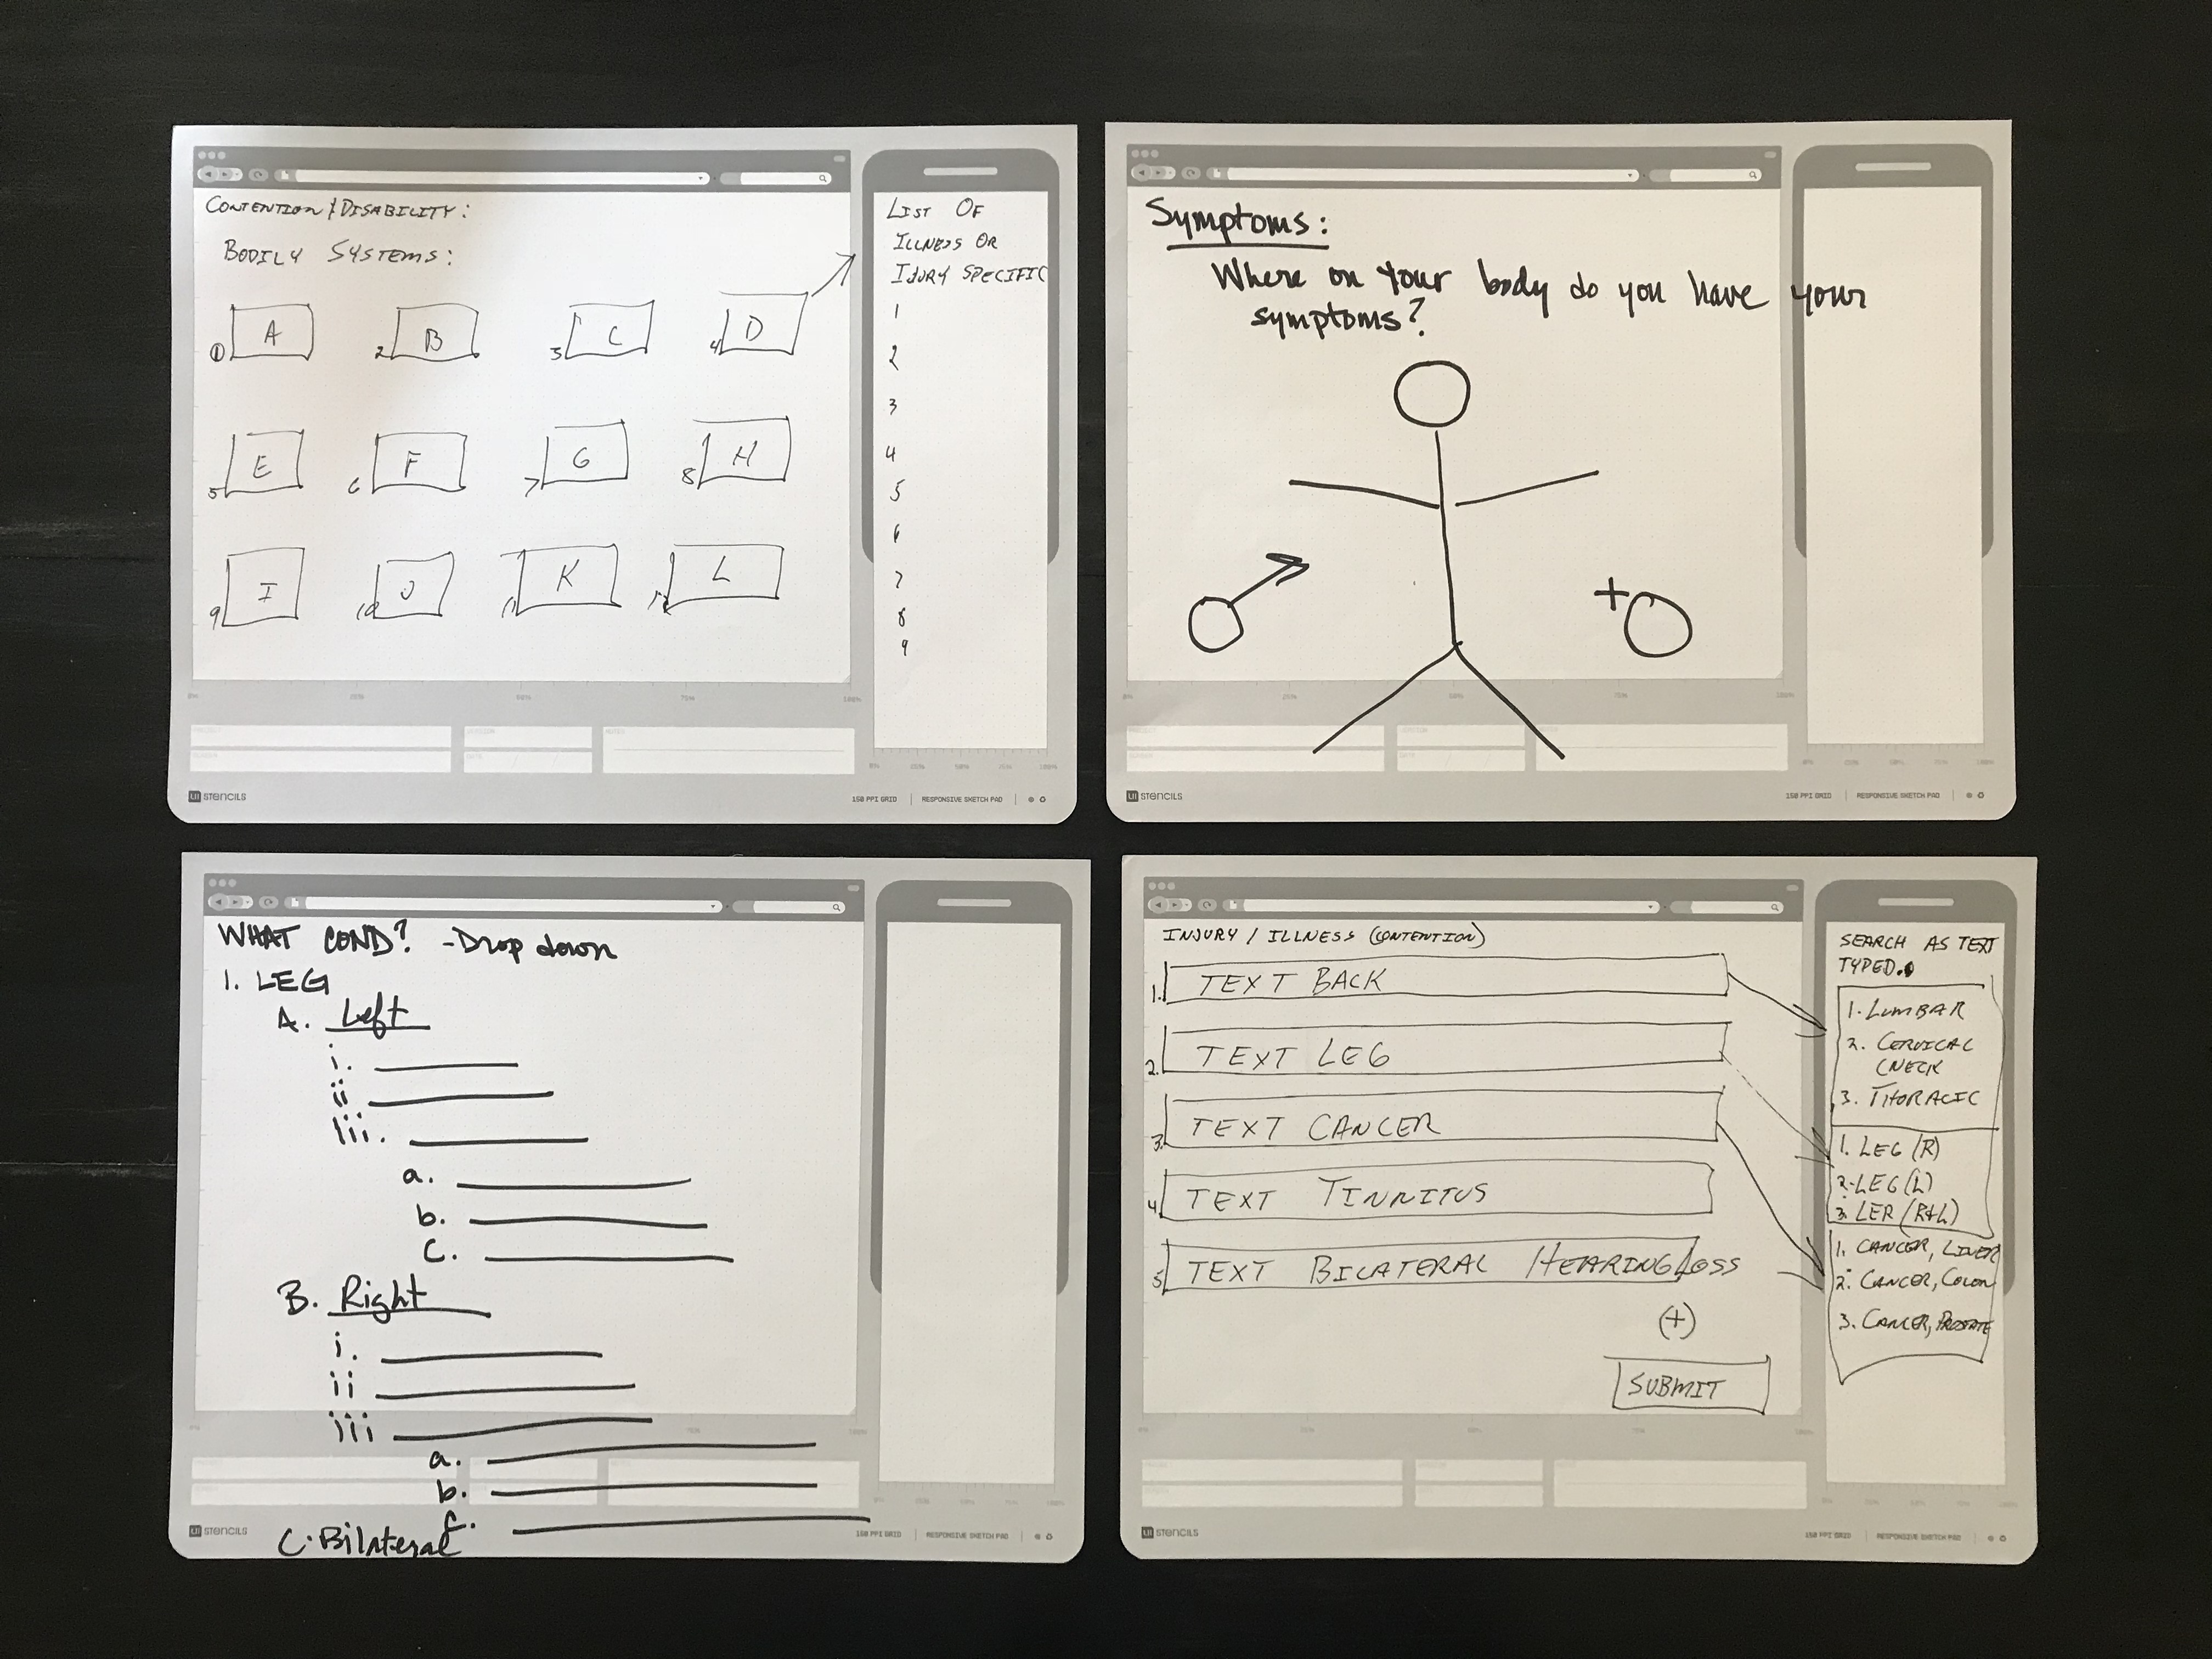 CONTENTION/DISABILITY:
BODILY SYSTEMS:
1 A 2 B 3 C 4 D
5 E 6 F 7 G 8 H
9 I 10 J 11 K 12 L
LIST OF
ILLNESS OR
IJURY SPECIFIC
1
2
3
4
5
6
7
8
9
0% 25% 50% 75% 100%
0% 25% 50% 75% 100%
PROJECT
VERSION
NOTES
SCREEN
DATE
UI STENCILS
150 PPI GRID | RESPONSIVE SKETCH PAD
Symptoms:
Where on your body do you have your
symptoms?
+
0% 25% 50% 75% 100%
0% 25% 50% 75% 100%
UI STENCILS
150 PPI GRID | RESPONSIVE SKETCH PAD
WHAT COND? - Drop down
1. LEG
A. Left
i.
ii
iii.
a.
b.
c.
B. Right
i.
ii
iii
a.
b.
c.
C. Bilateral
75% 100%
0% 25% 50% 75% 100%
UI STENCILS
150 PPI GRID | RESPONSIVE SKETCH PAD
INJURY / ILLNESS (CONTENTION)
1. TEXT BACK
2. TEXT LEG
3. TEXT CANCER
4 TEXT TINNITUS
5 TEXT BILATERAL HEARING LOSS
(+)
SUBMIT
SEARCH AS TEXT
TYPED.
1. LUMBAR
2. CERVICAL
CNECK
3. THORACIC
1. LEG (R)
2. LEG (L)
3. LER (R+L)
1. CANCER, LIVER
2. CANCER, COLON
3. CANCER, PROSTATE
0% 25% 50% 75% 100%
0% 25% 50% 75% 100%
UI STENCILS
150 PPI GRID | RESPONSIVE SKETCH PAD